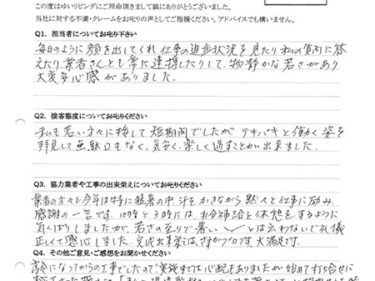 この度はゆいリビングにご用命頂きまして誠にありがとうございます。
当社に対する不満・クレームをお叱りの声としてご指摘ください。アドバイスでも構いません。
Q1. 担当者についてお叱り下さい
毎日のように顔を出してくれ仕事の進歩状況を見たり私の質問に答
えたり業者さんとも常に連携したりして、物静かな若さがあり
大変安心感がありました。
Q2. 接客態度についてお叱りください
私も若い方々に接して短期間でしたがテキパキと働く姿を
拝見して無駄口もなく、気安く楽しく過すことが出来ました。
Q3. 協力業者や工事の出来栄えについてお叱りください
業者の方々も今年は特に猛暑の中汗をかきながら黙々と仕事に励み
感謝の一言です。10時と3時には、水分補給と休憩をするように
気くばりしましたが、若さの
とは云わないで礼儀
正しくて感心しました。完成出来栄えはすばらしかったです大満足です。
Q4. その他ご意見・ご感想をお聞かせください
高令になってからの工事でしたので実施までは心配もありましたが、始めて打ち合せに